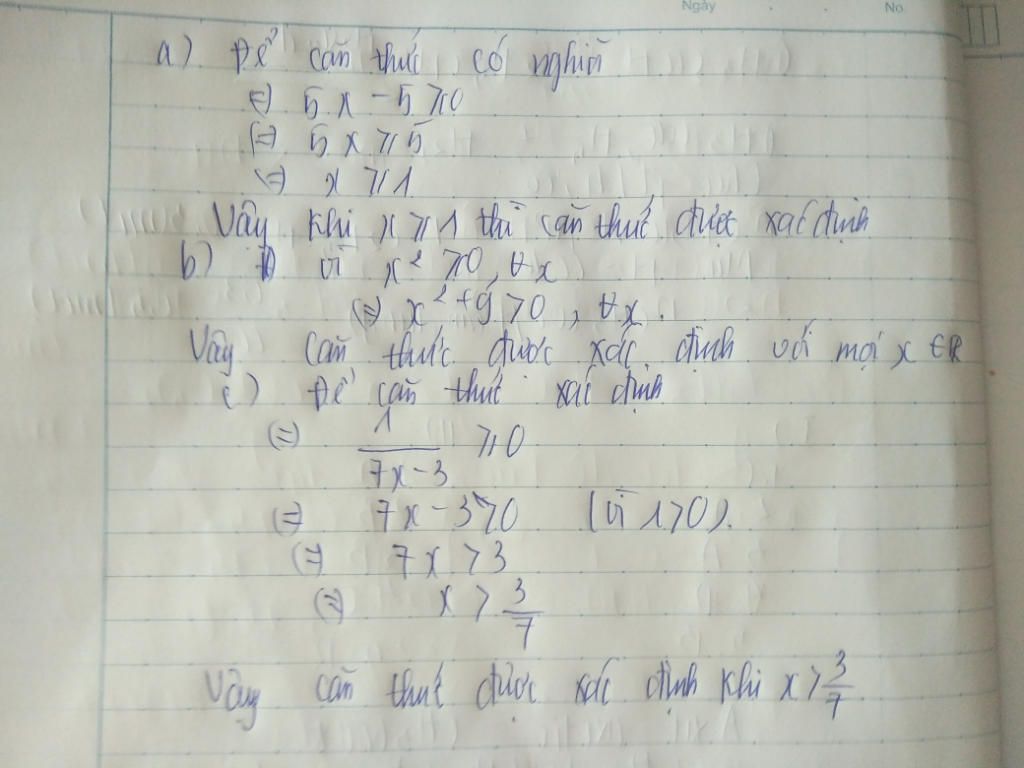 Ngày . . No.
a) Để căn thức có nghĩa
(=) 5x - 5 ≥ 0
(=) 5x ≥ 5
(=) x ≥ 1
Vậy khi x ≥ 1 thì căn thức được xác định
b) Vì x² ≥ 0, ∀x
(=) x² + 9 > 0, ∀x.
Vậy căn thức được xác định với mọi x ∈ R
c) Để căn thức xác định
(=) 1/(7x - 3) ≥ 0
(=) 7x - 3 > 0 (vì 1 > 0).
(=) 7x > 3
(=) x > 3/7
Vậy căn thức được xác định khi x > 3/7.